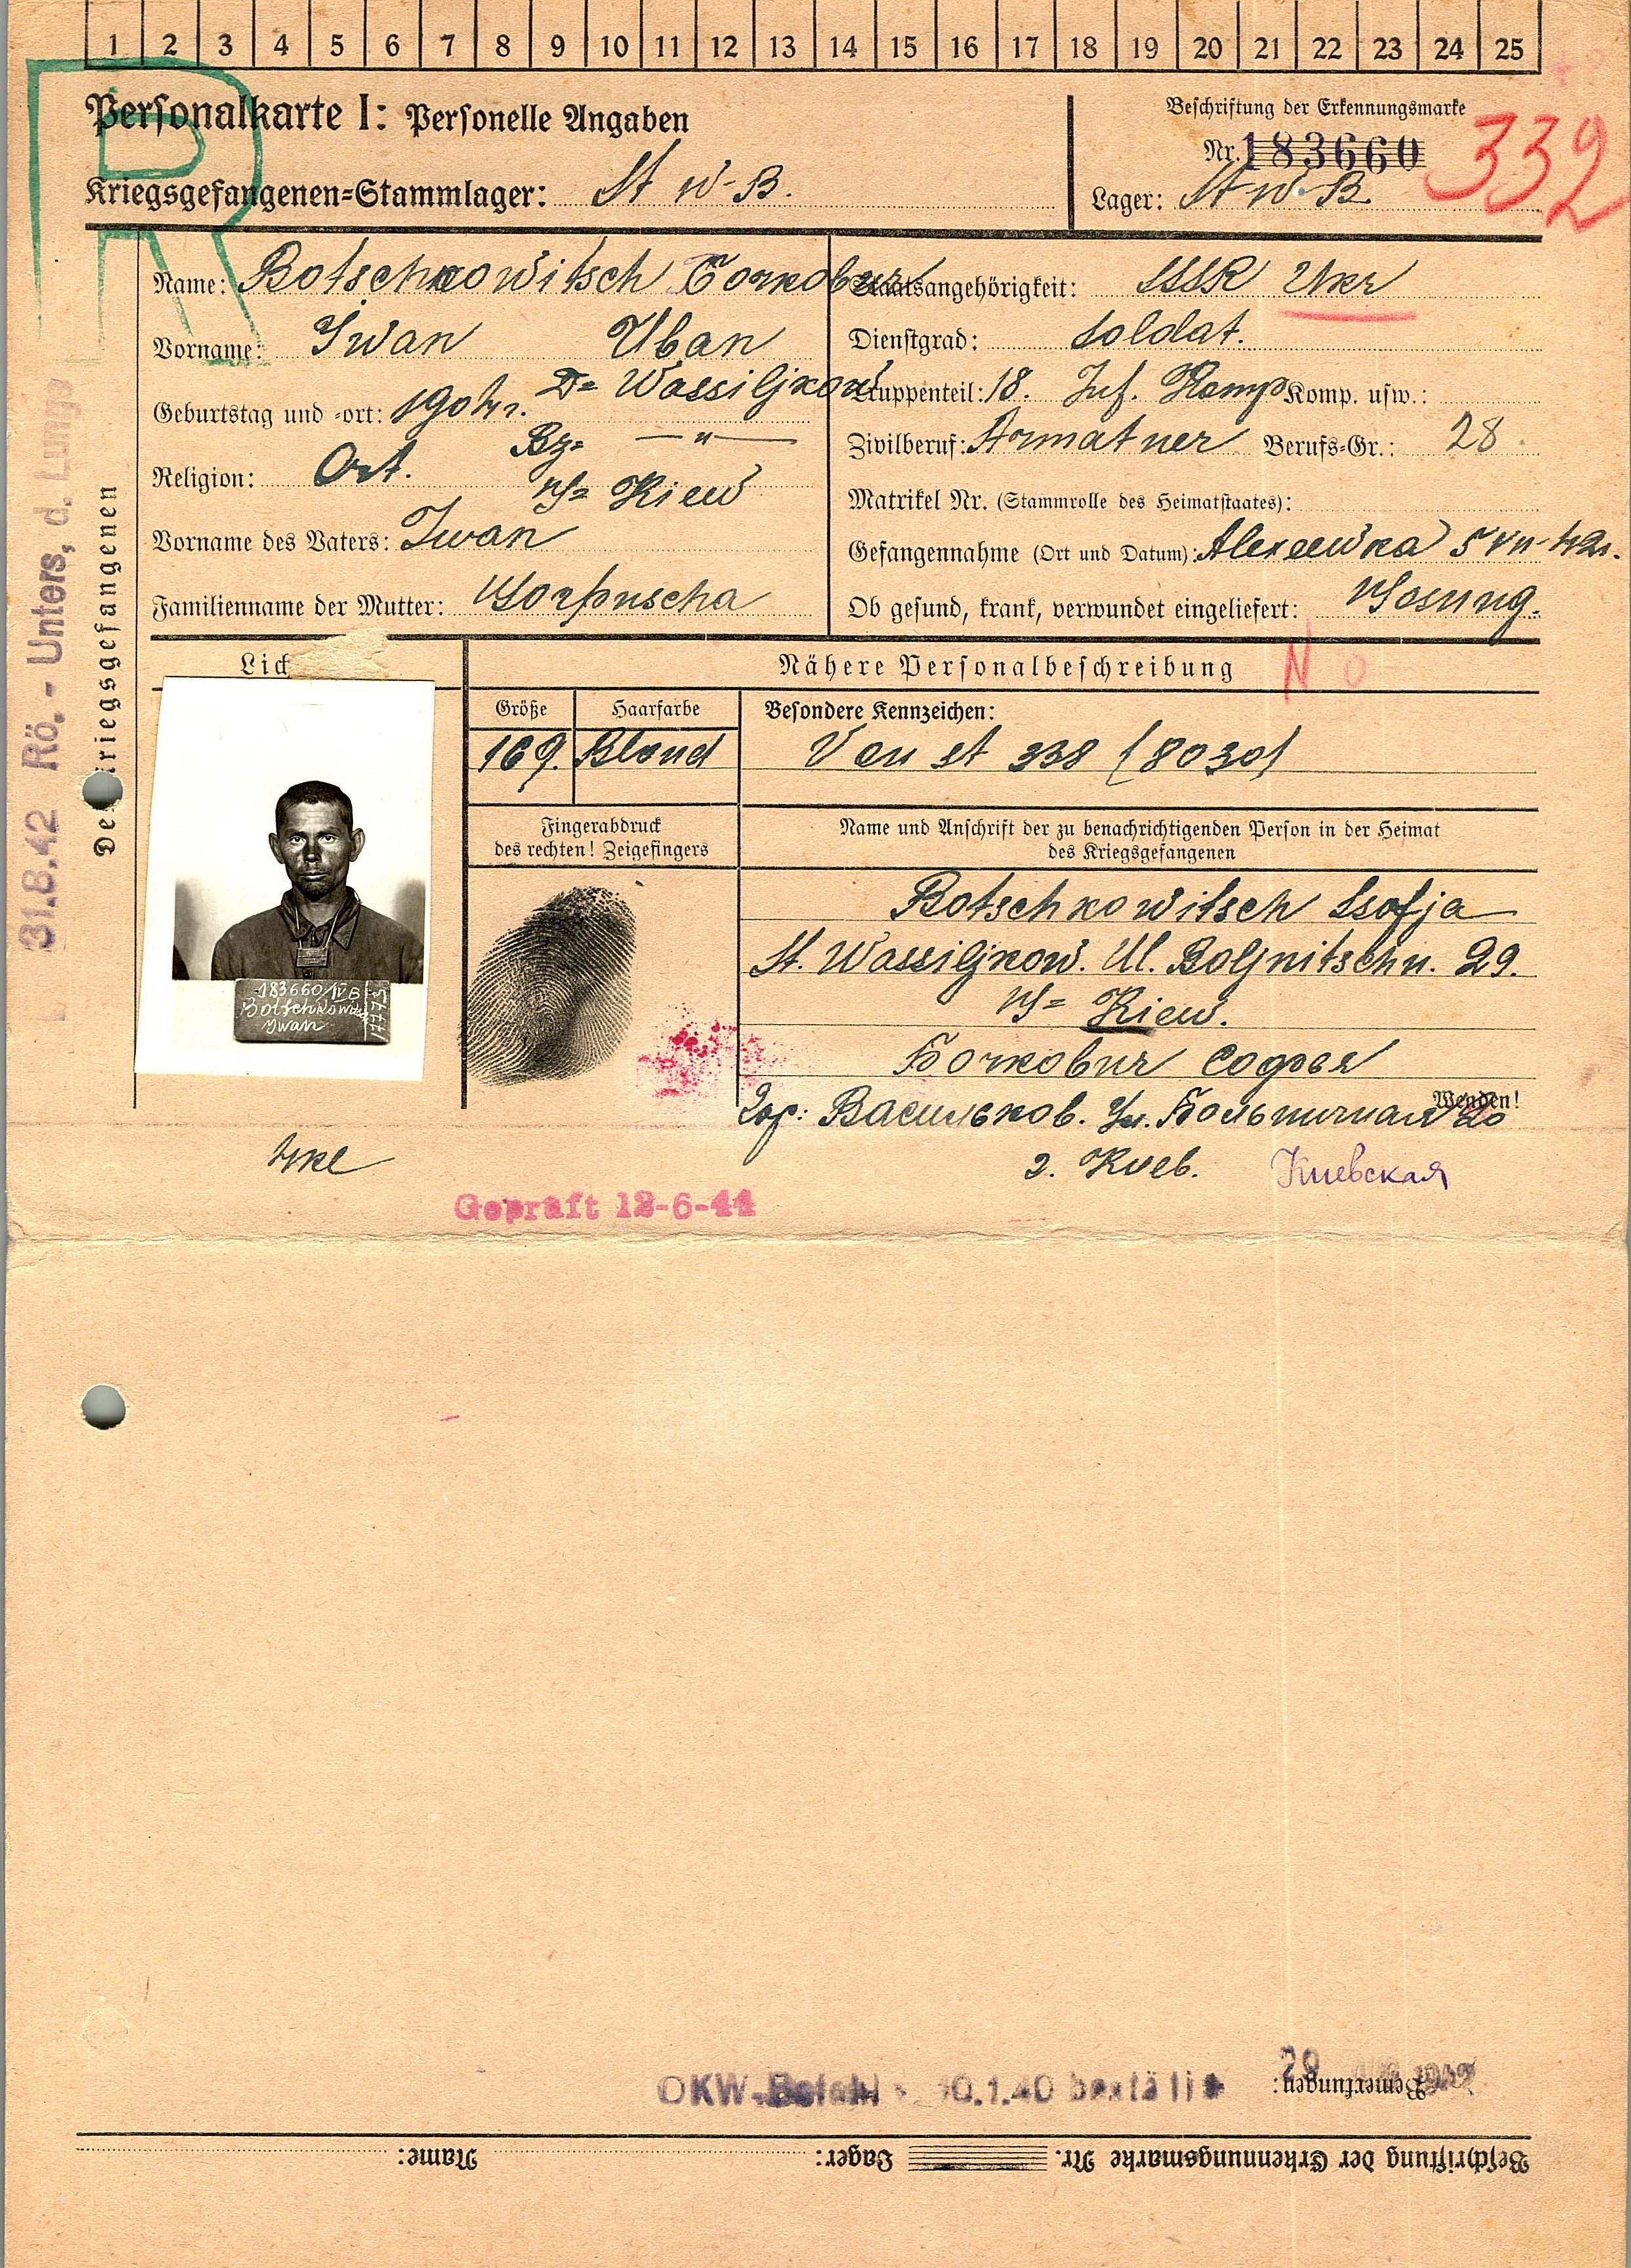 1 2 3 4 5 6 7 8 9 10 11 12 13 14 15 16 17 18 19 20 21 22 23 24 25
R
Personalkarte I: Personelle Angaben
Kriegsgefangenen-Stammlager: St IV-B.
Beschriftung der Erkennungsmarke
Nr. 183660
332
Lager: St-IV-B.
Des Kriegsgefangenen
31.8.42 Rö.- Unters, d. Lunge
Name: Botschkowitsch Бочкович
Vorname: Iwan Иван
Geburtstag und -ort: 1904 г. D= Wassiljkow
Bz= — " —
Religion: Ort.
Kiew
Vorname des Vaters: Iwan
Familienname der Mutter:
Staatsangehörigkeit: SSSR Ukr
Dienstgrad: Soldat.
Truppenteil: 18. Inf. Komp Komp. usw.:
Zivilberuf: Armatner Berufs-Gr.: 28
Matrikel Nr. (Stammrolle des Heimatstaates):
Gefangennahme (Ort und Datum): Alexeewka 5 VII-42г.
Ob gesund, krank, verwundet eingeliefert:
Lich
Nähere Personalbeschreibung
N o
Größe
Haarfarbe
Besondere Kennzeichen:
169. Blond
Von St 338 (8030)
Fingerabdruck
des rechten! Zeigefingers
Name und Anschrift der zu benachrichtigenden Person in der Heimat
des Kriegsgefangenen
183660/IV B
Botschkowitsch
Iwan
Botschkowitsch Ssofja
St. Wassiljkow. Ul. Boljnitschn. 29.
Kiew.
Бочкович Софья
Гор: Васильков. Ул. Больничная
Wenden!
г. Киев. Киевская
Geprüft 12-6-44
OKW-Befehl 10.1.40
Bemerkungen:
Beschriftung der Erkennungsmarke Nr. Lager: Name: